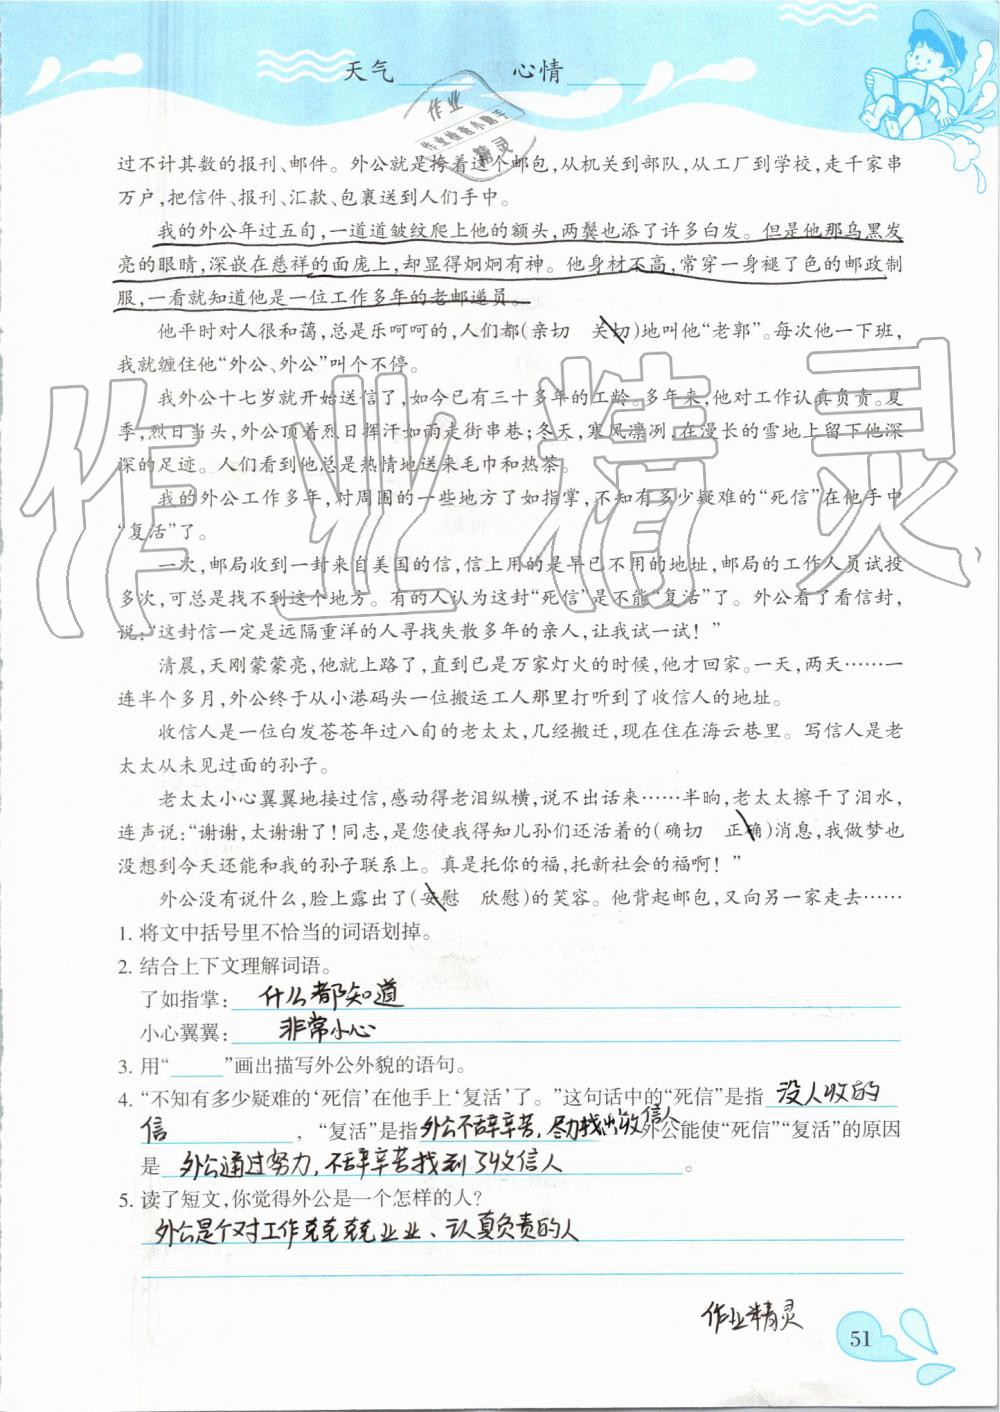 天气 心情
作业
作业检查小助手
精灵
过不计其数的报刊、邮件。外公就是挎着这个邮包,从机关到部队,从工厂到学校,走千家串
万户,把信件、报刊、汇款、包裹送到人们手中。
我的外公年过五旬,一道道皱纹爬上他的额头,两鬓也添了许多白发。但是他那乌黑发
亮的眼睛,深嵌在慈祥的面庞上,却显得炯炯有神。他身材不高,常穿一身褪了色的邮政制
服,一看就知道他是一位工作多年的老邮递员。
他平时对人很和蔼,总是乐呵呵的,人们都(亲切 关切)地叫他“老郭”。每次他一下班,
我就缠住他“外公、外公”叫个不停。
我外公十七岁就开始送信了,如今已有三十多年的工龄。多年来,他对工作认真负责。夏
季,烈日当头,外公顶着烈日挥汗如雨走街串巷;冬天,寒风凛冽,在漫长的雪地上留下他深
深的足迹。人们看到他总是热情地送来毛巾和热茶。
我的外公工作多年,对周围的一些地方了如指掌,不知有多少疑难的“死信”在他手中
“复活”了。
一次,邮局收到一封来自美国的信,信上用的是早已不用的地址,邮局的工作人员试投
多次,可总是找不到这个地方。有的人认为这封“死信”是不能“复活”了。外公看了看信封,
说:“这封信一定是远隔重洋的人寻找失散多年的亲人,让我试一试!”
清晨,天刚蒙蒙亮,他就上路了,直到已是万家灯火的时候,他才回家。一天,两天……一
连半个多月,外公终于从小港码头一位搬运工人那里打听到了收信人的地址。
收信人是一位白发苍苍年过八旬的老太太,几经搬迁,现在住在海云巷里。写信人是老
太太从未见过面的孙子。
老太太小心翼翼地接过信,感动得老泪纵横,说不出话来……半晌,老太太擦干了泪水,
连声说:“谢谢,太谢谢了!同志,是您使我得知儿孙们还活着的(确切 正确)消息,我做梦也
没想到今天还能和我的孙子联系上。真是托你的福,托新社会的福啊!”
外公没有说什么,脸上露出了(安慰 欣慰)的笑容。他背起邮包,又向另一家走去……
1. 将文中括号里不恰当的词语划掉。
2. 结合上下文理解词语。
了如指掌: 什么都知道
小心翼翼: 非常小心
3. 用“ ”画出描写外公外貌的语句。
4. “不知有多少疑难的‘死信’在他手上‘复活’了。”这句话中的“死信”是指 没人收的
信 ,“复活”是指 外公不辞辛苦,尽力找出收信人 外公能使“死信”“复活”的原因
是 外公通过努力,不辞辛苦找到了收信人 。
5. 读了短文,你觉得外公是一个怎样的人?
外公是个对工作兢兢业业、认真负责的人
作业精灵
51
作业精灵